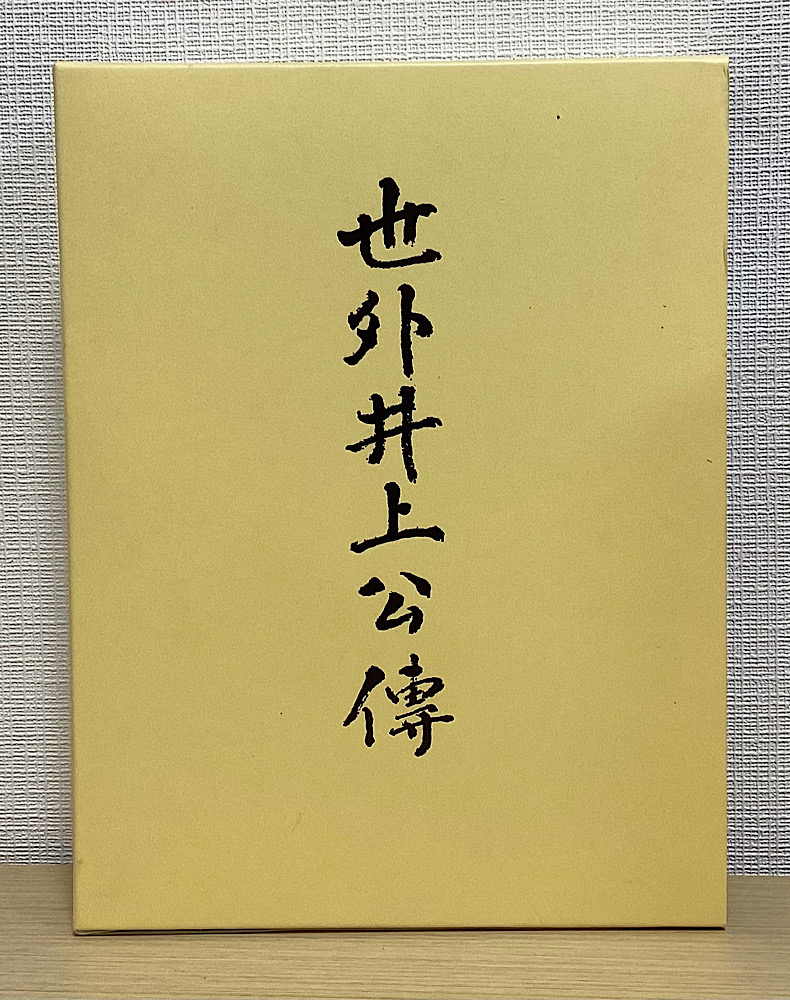 世外井上公傳